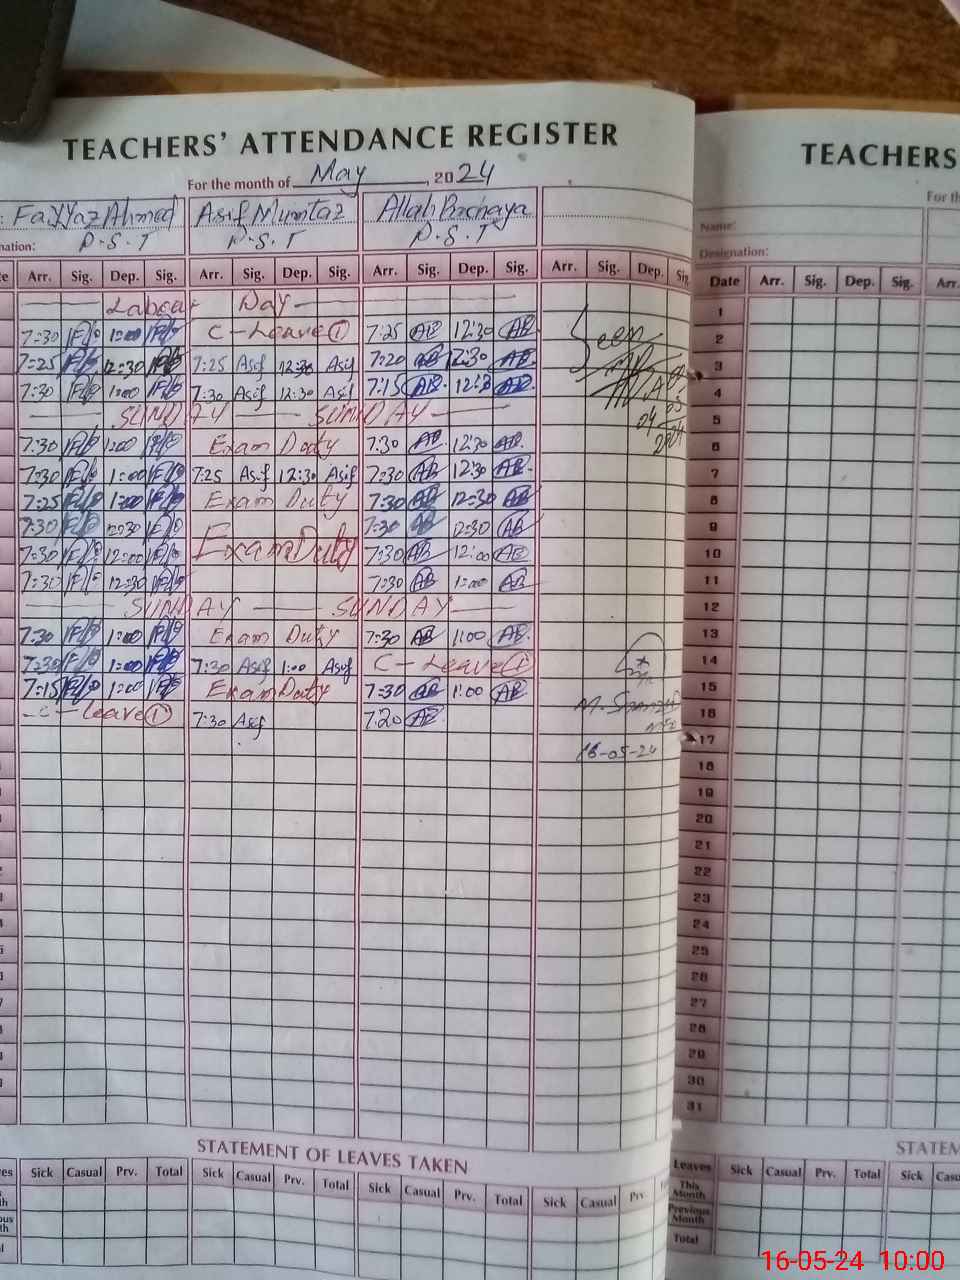 TEACHERS' ATTENDANCE REGISTER
For the month of May, 2024
: Fayyaz Ahmed Asif Mumtaz Allah Bachaya
nation: P.S.T P.S.T P.S.T
te Arr. Sig. Dep. Sig. Arr. Sig. Dep. Sig. Arr. Sig. Dep. Sig. Arr. Sig. Dep. Sig
Labour Day
7:30 1:00 C-Leave ① 7:25 AB 12:30 AB
7:25 12:30 7:25 Asif 12:30 Asif 7:20 AB 12:30 AB
7:30 1:00 7:30 Asif 12:30 Asif 7:15 AB 12:30 AB
SUNDAY SUNDAY
7:30 1:00 Exam Duty 7:30 AB 12:30 AB
7:30 1:00 7:25 Asif 12:30 Asif 7:30 AB 12:30 AB
7:25 1:00 Exam Duty 7:30 AB 12:30 AB
7:30 12:30 7:30 AB 12:30 AB
7:30 12:00 Exam Duty 7:30 AB 12:00 AB
7:30 12:30 7:30 AB 1:00 AB
SUNDAY SUNDAY
7:30 1:00 Exam Duty 7:30 AB 1:00 AB
7:30 1:00 7:30 Asif 1:00 Asif C-Leave ①
7:15 1:00 Exam Duty 7:30 AB 1:00 AB
C-Leave ① 7:30 Asif 7:20 AB
Seen
04
05
2024
16-05-24
STATEMENT OF LEAVES TAKEN
ves Sick Casual Prv. Total Sick Casual Prv. Total Sick Casual Prv. Total Sick Casual Prv.
TEACHERS
For th
Name:
Designation:
Date Arr. Sig. Dep. Sig. Arr.
1
2
3
4
5
6
7
8
9
10
11
12
13
14
15
16
17
18
19
20
21
22
23
24
25
26
27
28
29
30
31
STATEM
Leaves Sick Casual Prv. Total Sick Casu
This Month
Previous Month
Total
16-05-24 10:00